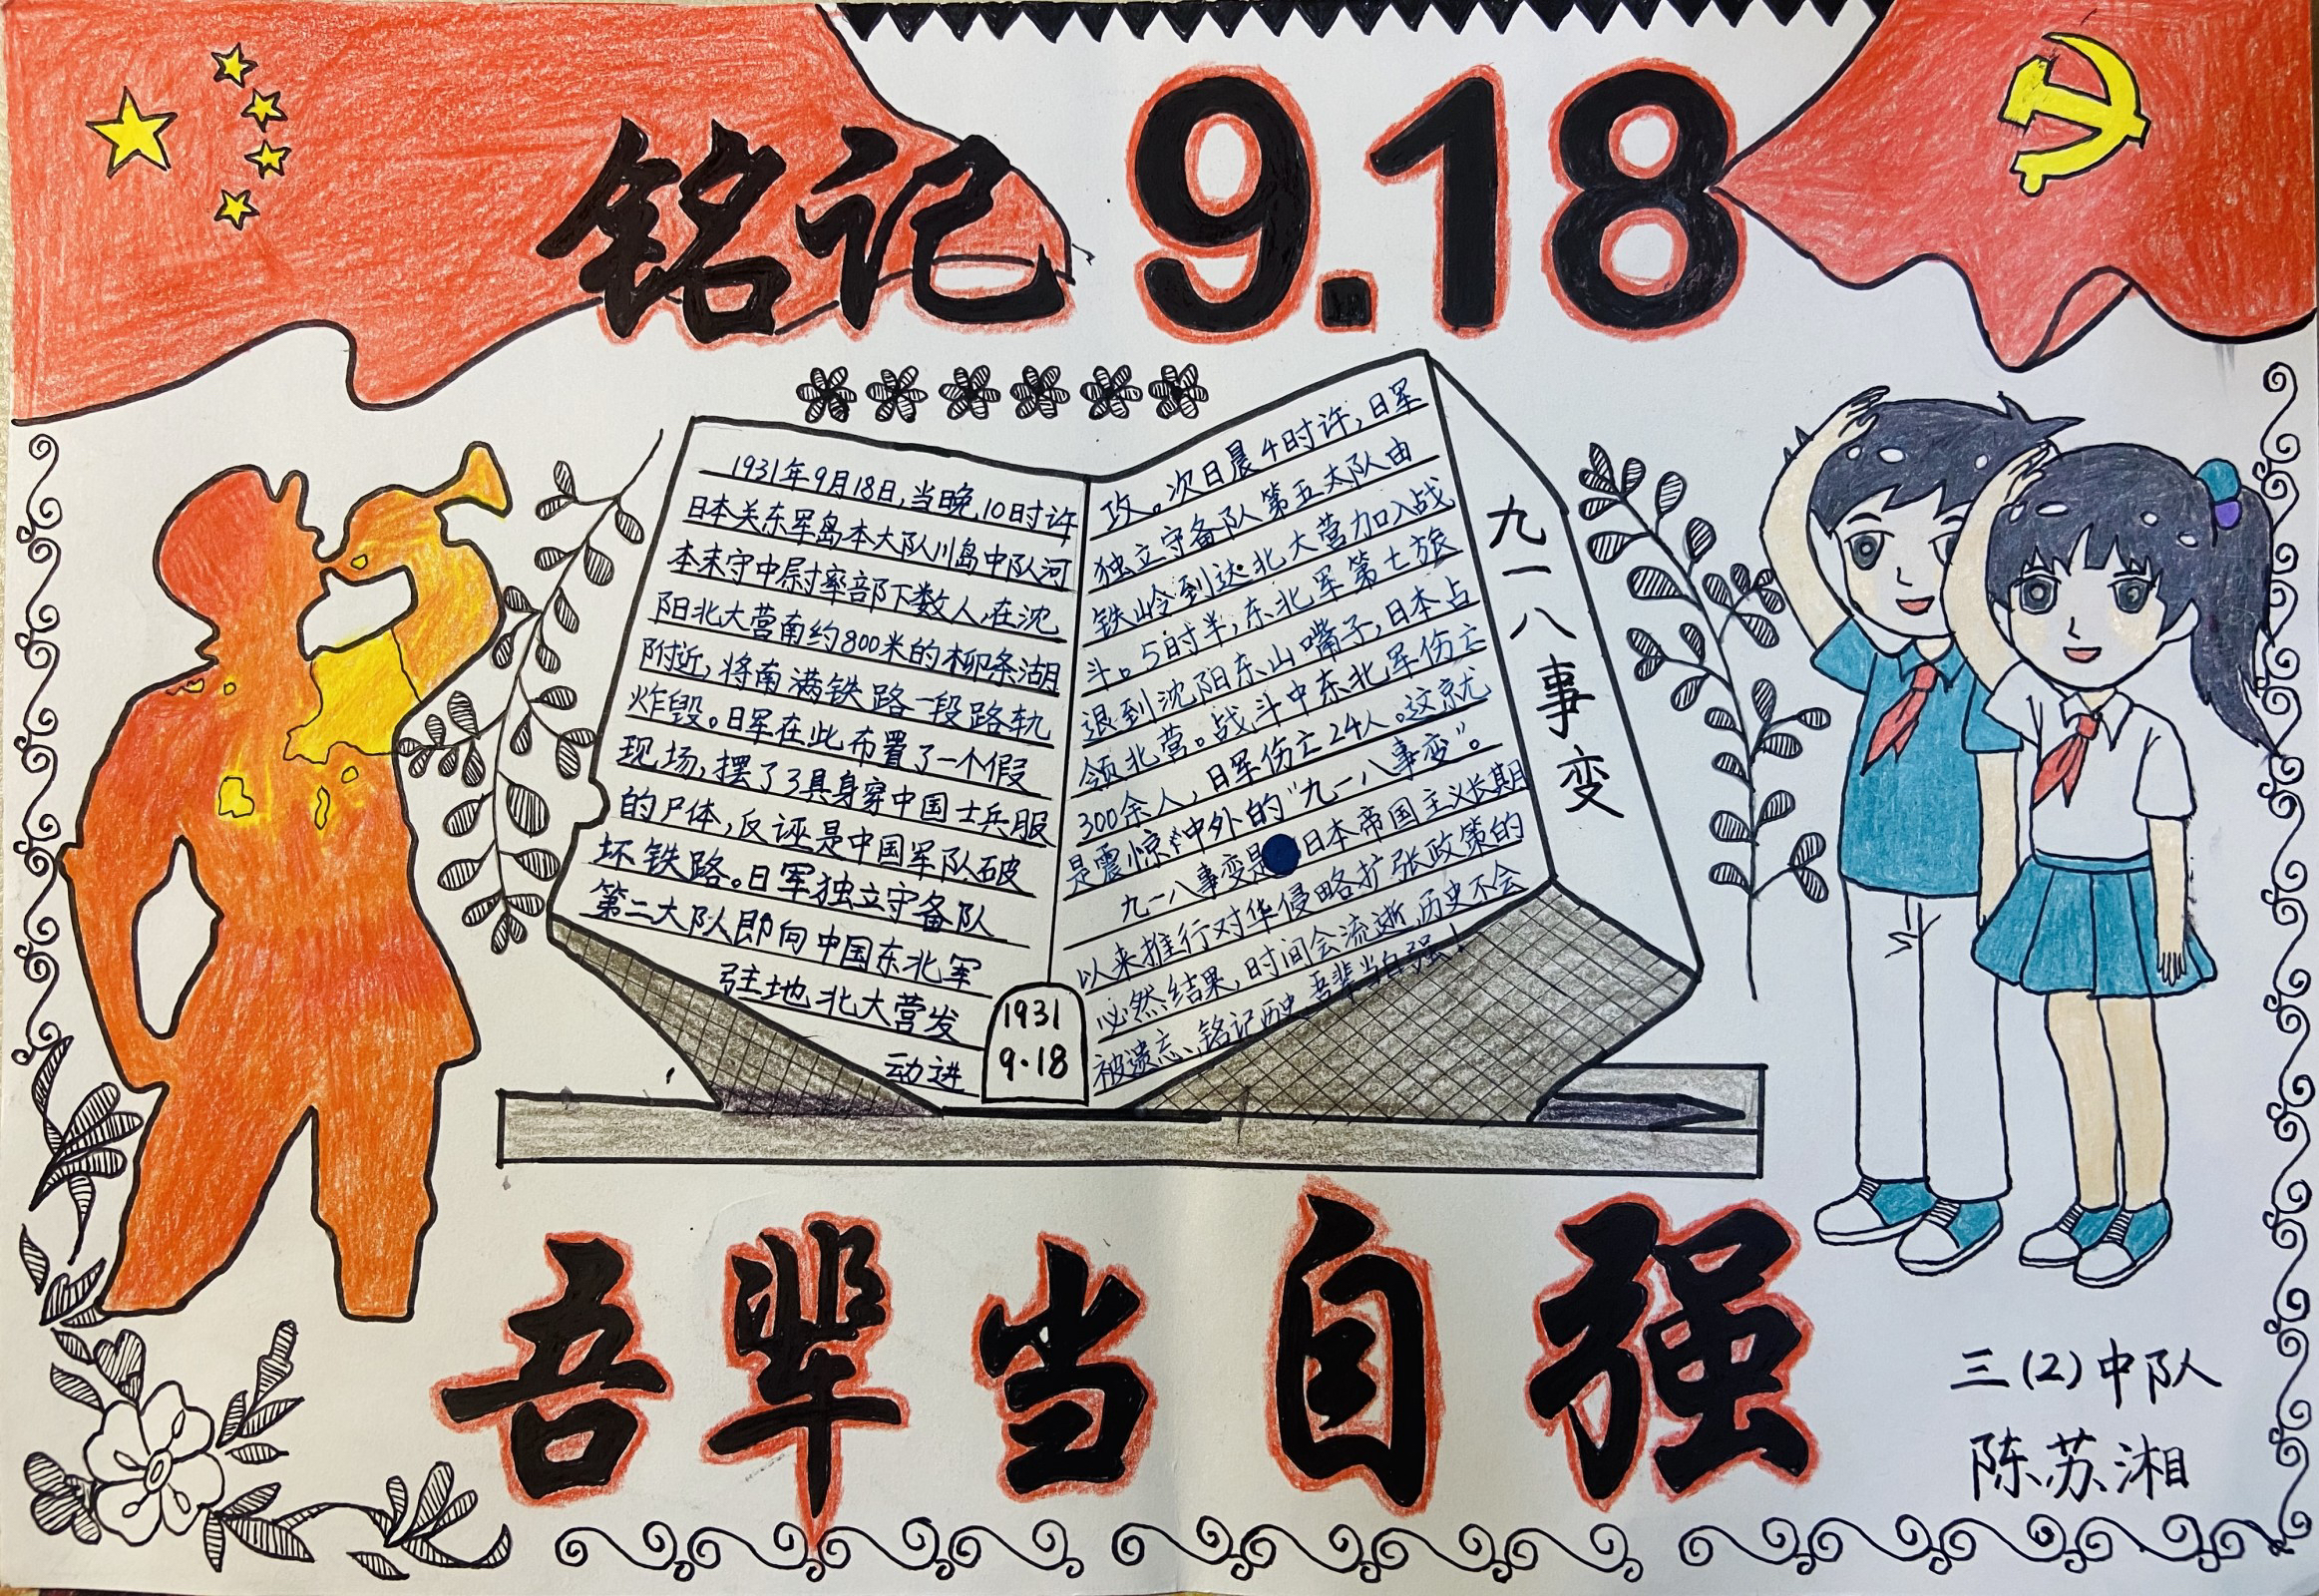 铭记 9.18
1931年9月18日,当晚10时许
日本关东军岛本大队川岛中队河
本末守中尉率部下数人,在沈
阳北大营南约800米的柳条湖
附近,将南满铁路一段路轨
炸毁。日军在此布置了一个假
现场,摆了3具身穿中国士兵服
的尸体,反诬是中国军队破
坏铁路。日军独立守备队
第二大队即向中国东北军
驻地北大营发
动进
攻。次日晨4时许,日军
独立守备队第五大队由
铁岭到达北大营加入战
斗。5时半,东北军第七旅
退到沈阳东山嘴子,日本占
领北营。战斗中东北军伤亡
300余人,日军伤亡24人。这就
是震惊中外的"九一八事变"。
九一八事变是日本帝国主义长期
以来推行对华侵略扩张政策的
必然结果,时间会流逝,历史不会
被遗忘、铭记历史,吾辈当自强!
九一八事变
1931
9·18
吾辈当自强
三(2)中队
陈苏湘